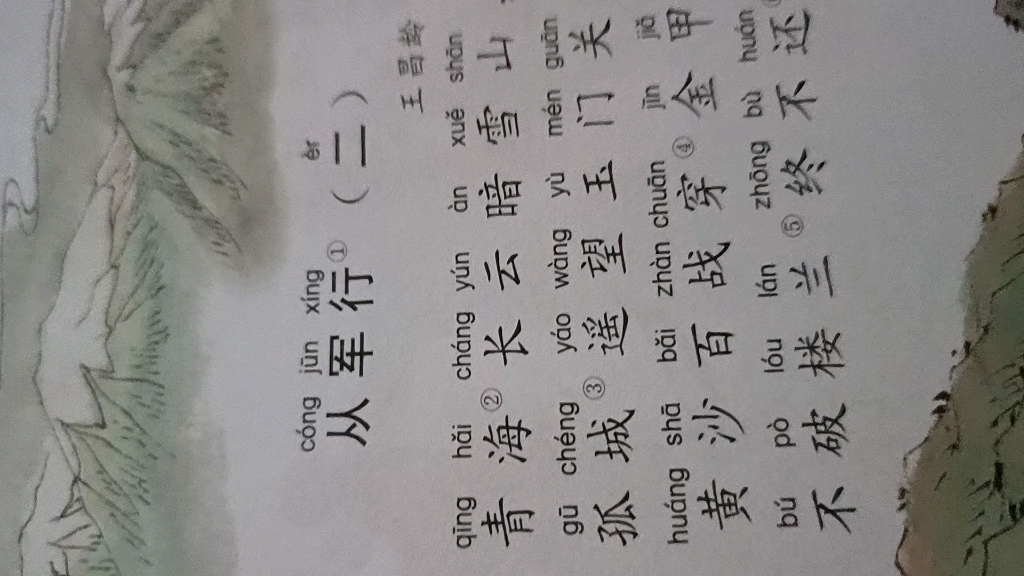 cóng jūn xíng èr
从军行①（二）
王昌龄
qīng hǎi cháng yún àn xuě shān
青海②长云暗雪山
gū chéng yáo wàng yù mén guān
孤城③遥望玉门关
huáng shā bǎi zhàn chuān jīn jiǎ
黄沙百战穿④金甲
bú pò lóu lán zhōng bù huán
不破楼兰⑤终不还